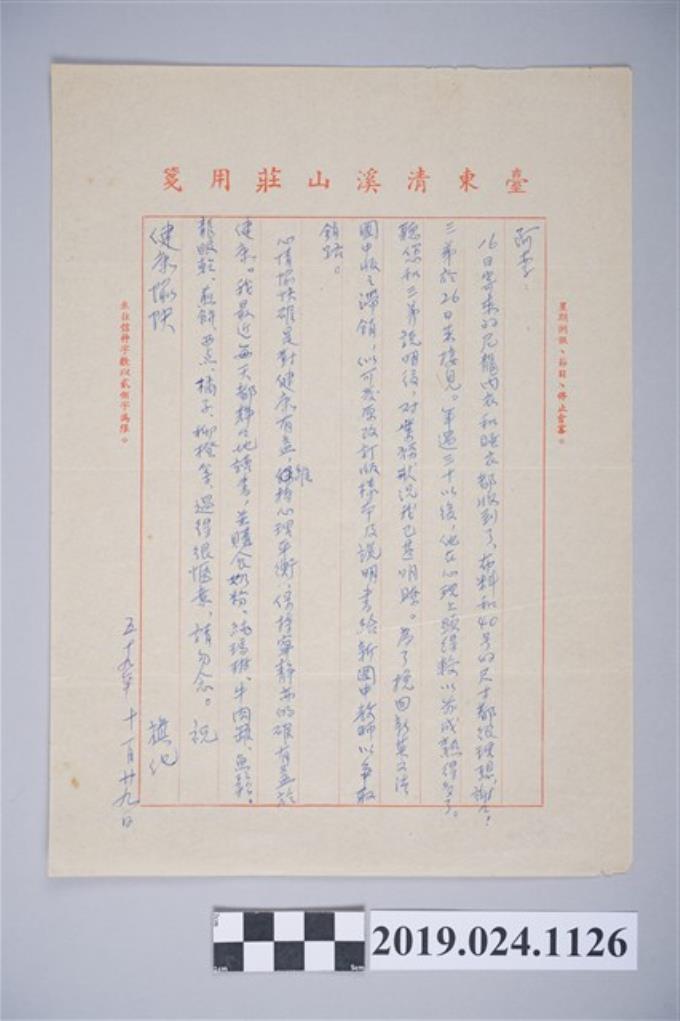 臺東清溪山莊用箋
星期例假、節日、停止會客。
阿李：
16日寄來的尼龍內衣和睡衣都收到了，布料和40号的尺寸都很理想，謝々！
三弟於26日來接見。年過三十以後，他在心理上顯得較以前成熟得多了。
聽您和三弟說明後，對業務狀況我已甚明瞭。為了挽回新英文法
國中版之滯銷，似可發原改訂版樣本及說明書給新國中教師以爭取
銷路。
心情愉快確是對健康有益，維持心理平衡、保持寧靜亦的確有益於
健康。我最近每天都靜々地讀書，並購食奶粉、純瑪琳、牛肉乾、魚鬆、
龍眼乾、煎餅、西点、橘子、柳橙等，過得很愜意，請勿念。祝
健康愉快
旗化
五十九年十一月廿九日
來往信件字數以貳佰字為限。
2019.024.1126